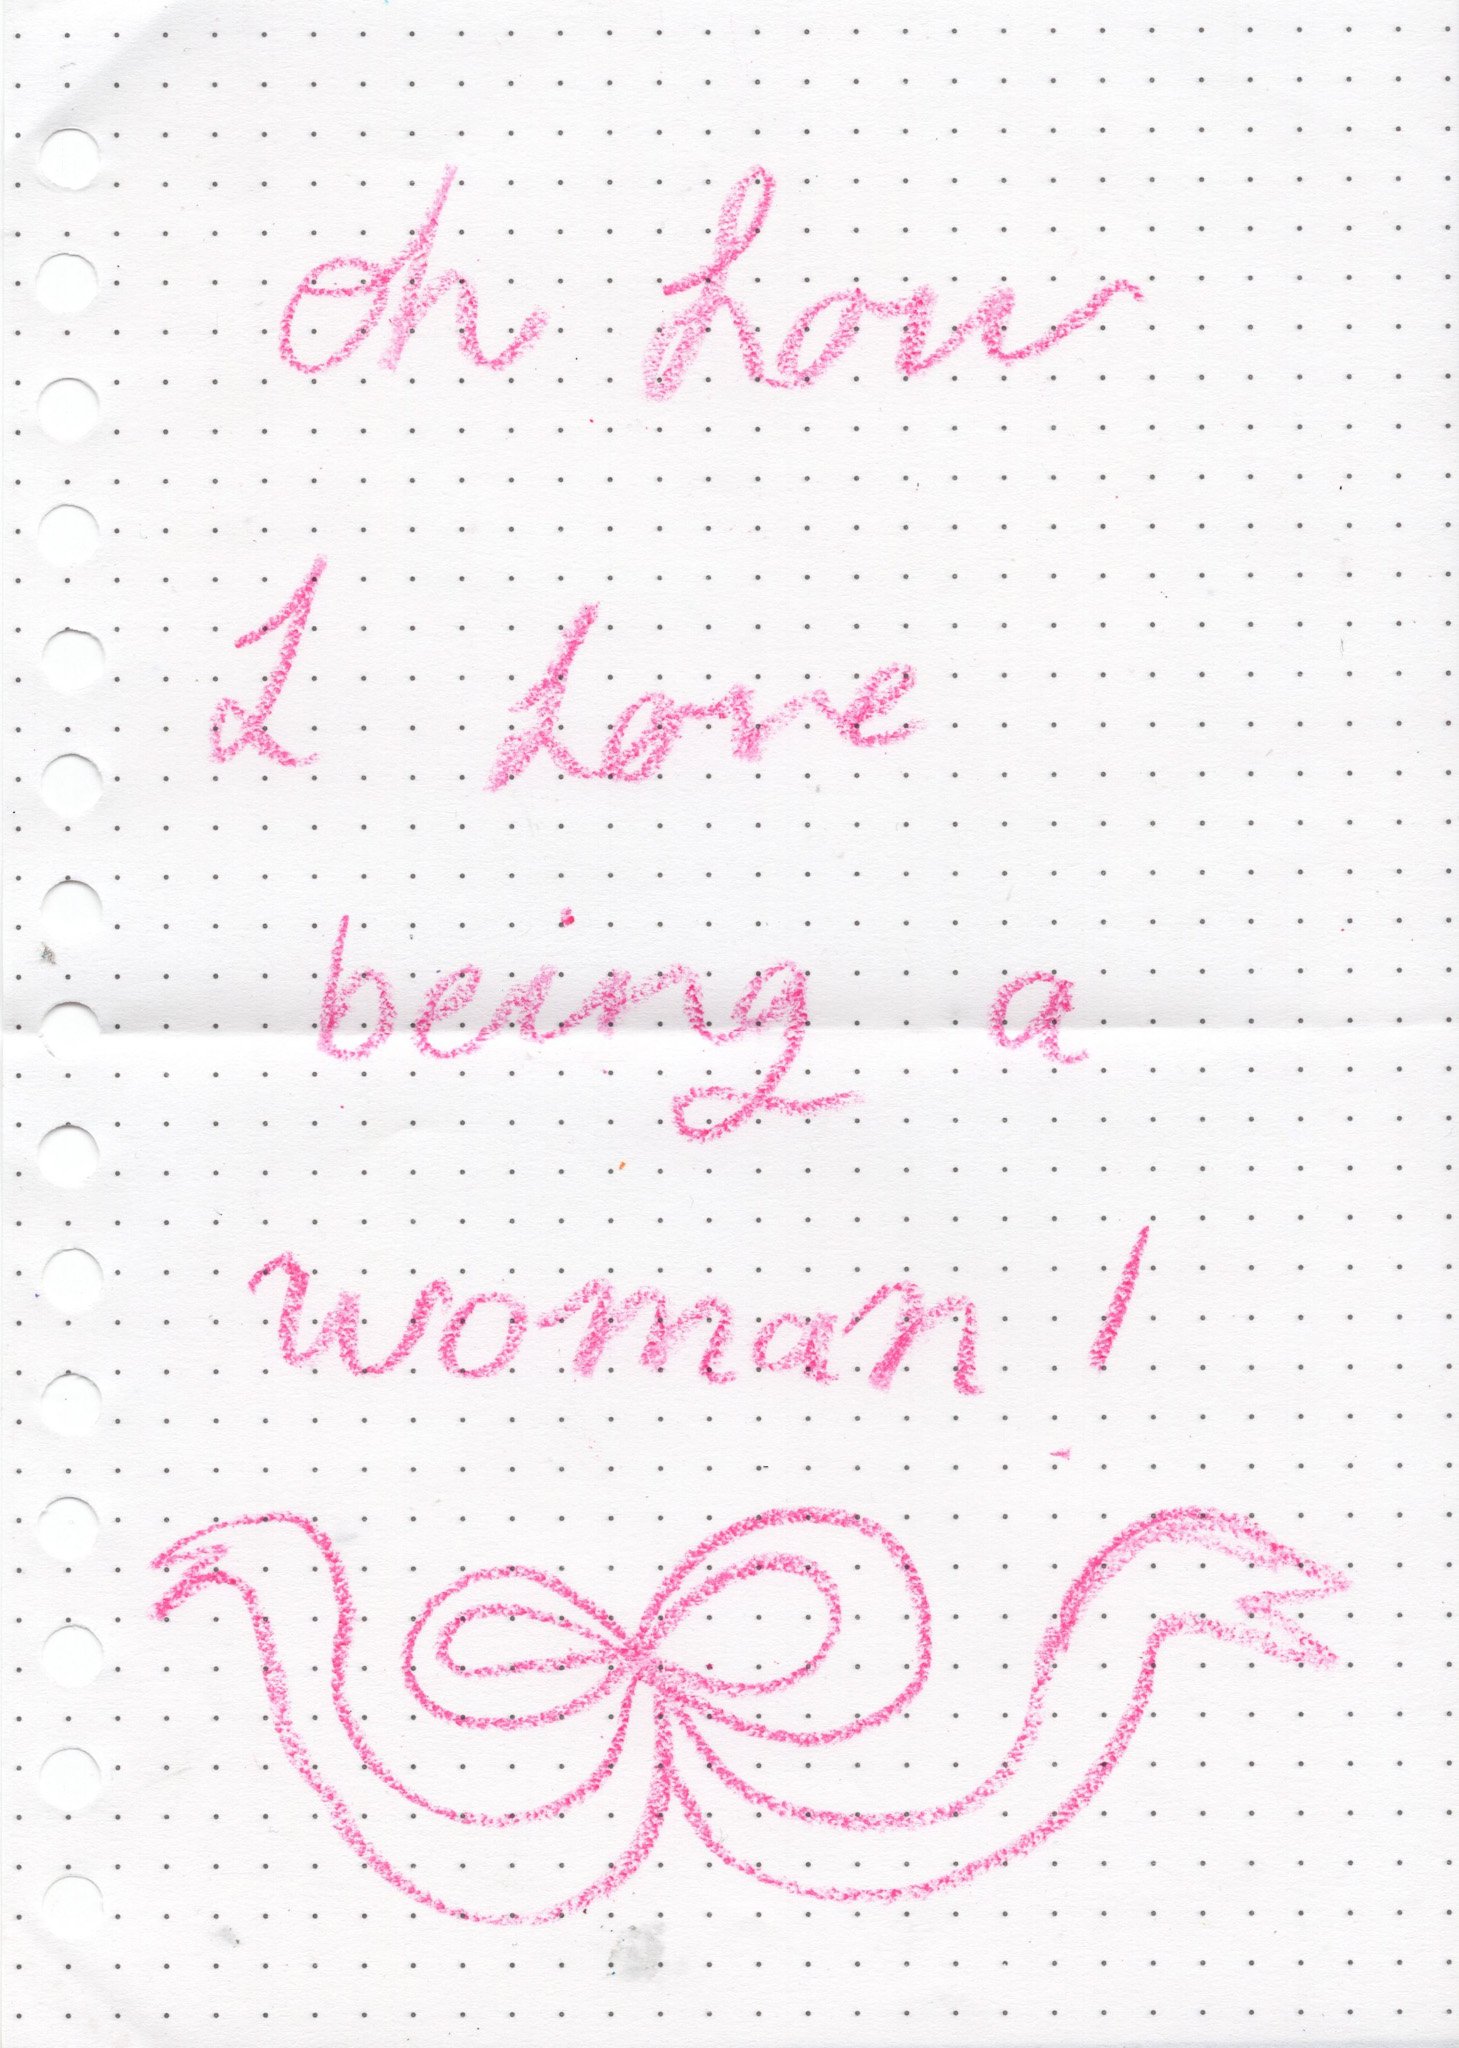 oh how
I love
being a
woman!